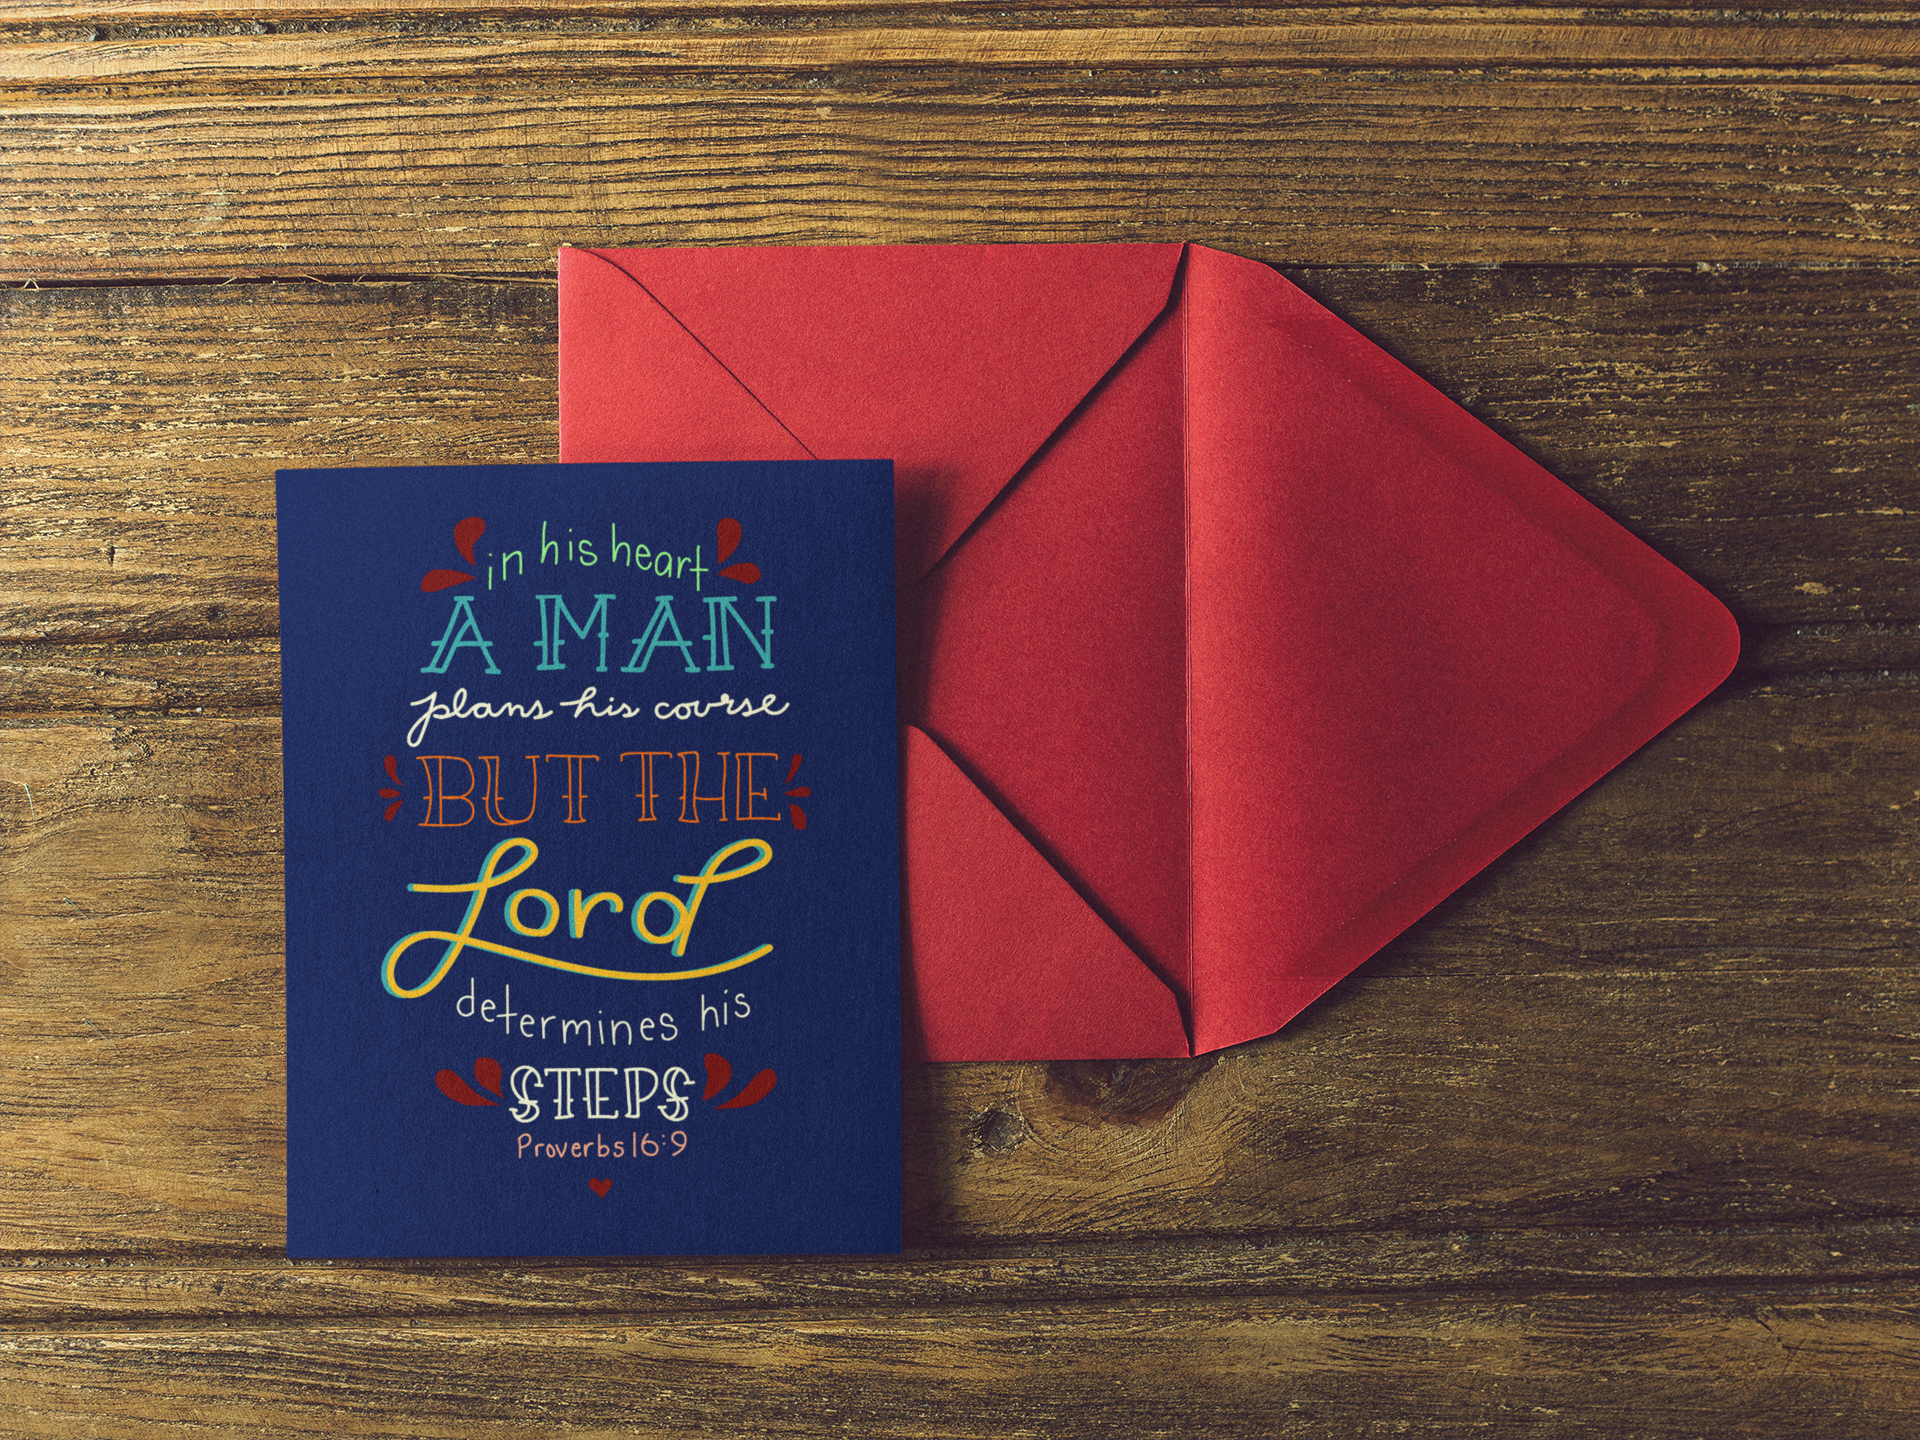 in his heart
A MAN
plans his course
BUT THE
Lord
determines his
STEPS
Proverbs 16:9